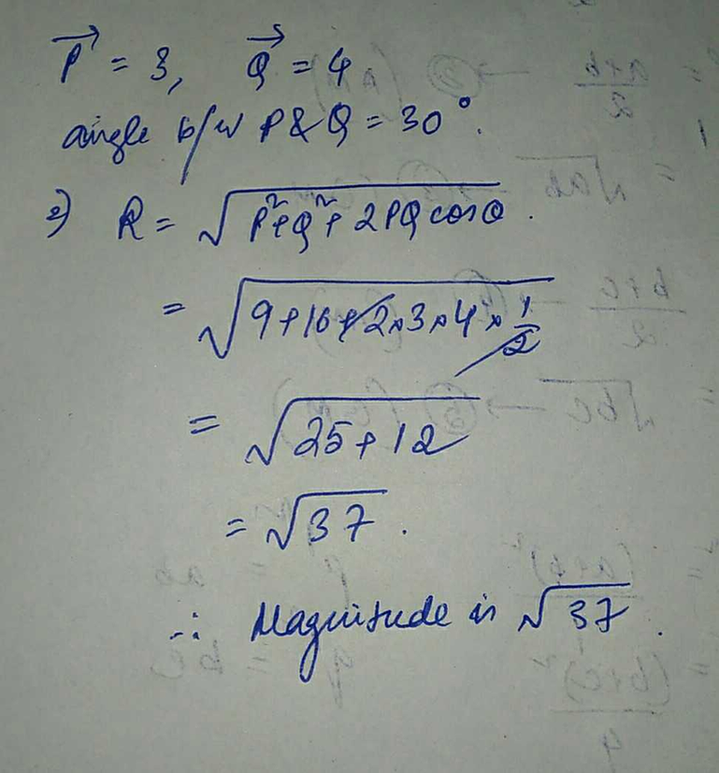 P⃗ = 3, Q⃗ = 4
angle b/w P & Q = 30°.
⇒ R = √(P² + Q² + 2PQ cos θ).
= √(9 + 16 + 2 × 3 × 4 × 1/2)
= √(25 + 12)
= √37.
∴ Magnitude is √37.